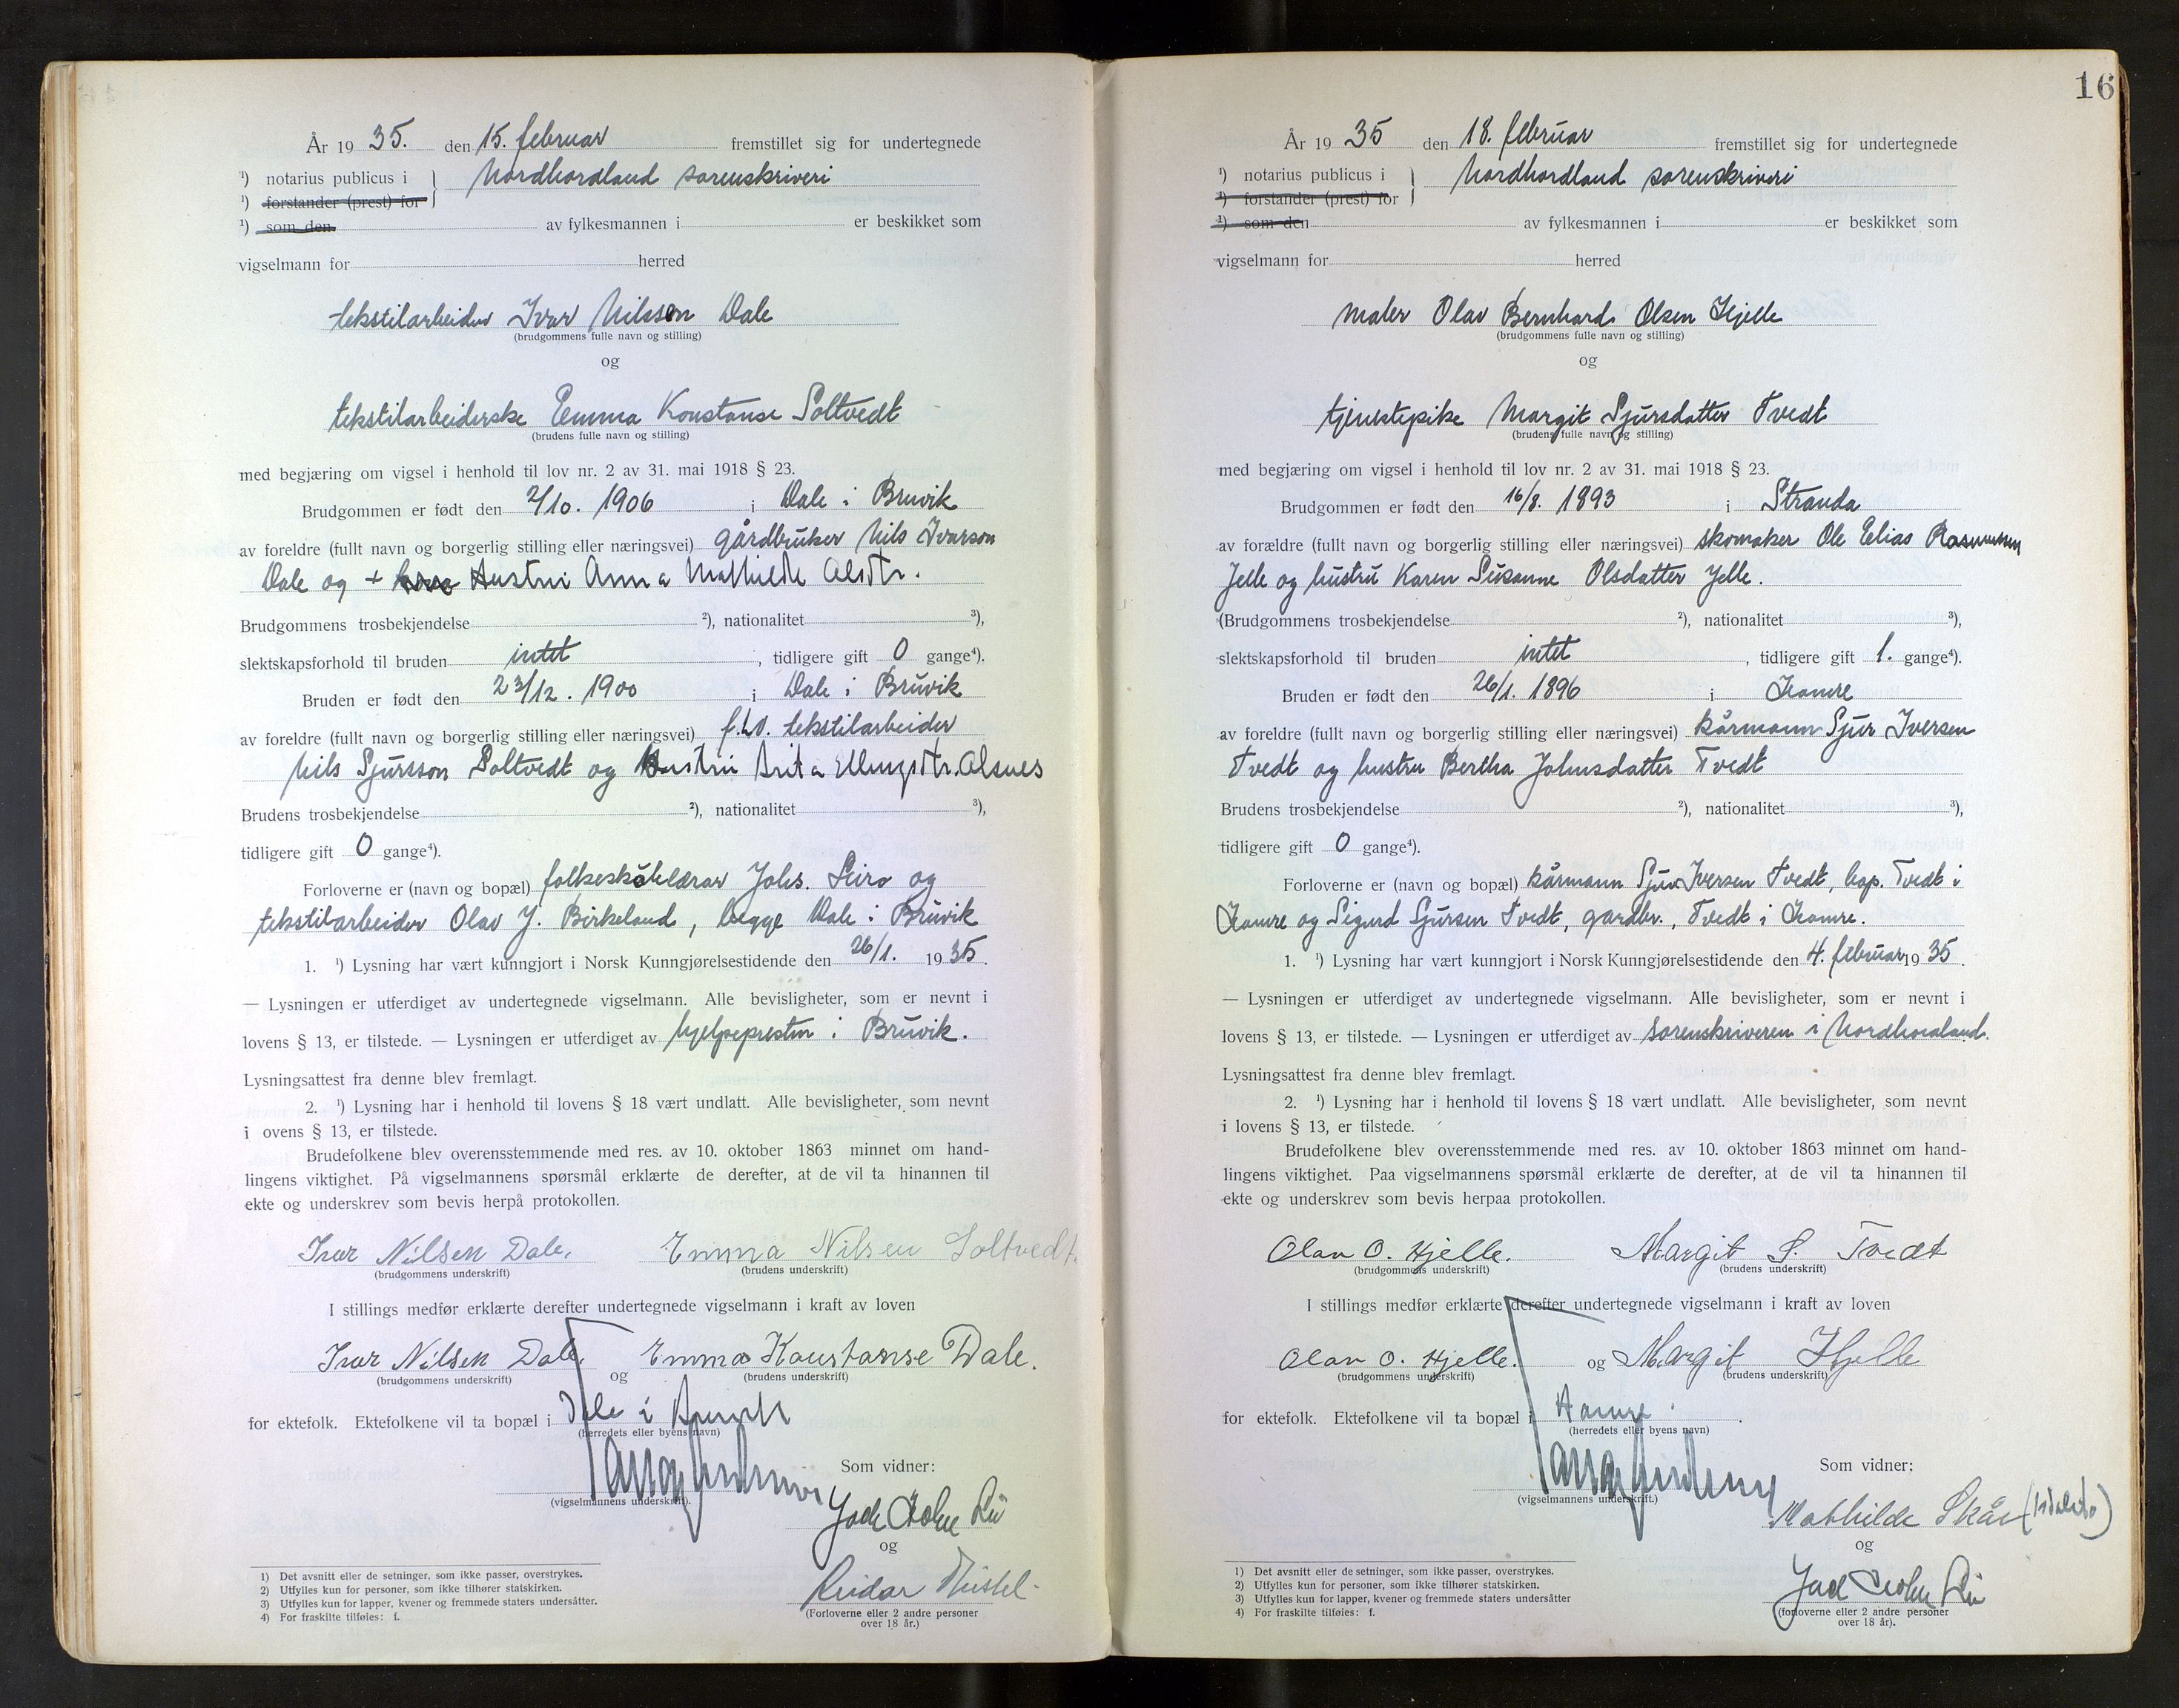 År 19 35. den 15. februar fremstillet sig for undertegnede
¹) notarius publicus i } Nordhordland sorenskriveri
¹) forstander (prest) for
¹) som den av fylkesmannen i er beskikket som
vigselmann for herred
tekstilarbeider Ivar Nilsson Dale
(brudgommens fulle navn og stilling)
og
tekstilarbeiderske Emma Konstanse Soltvedt
(brudens fulle navn og stilling)
med begjæring om vigsel i henhold til lov nr. 2 av 31. mai 1918 § 23.
Brudgommen er født den 2/10. 1906 i Dale i Bruvik
av foreldre (fullt navn og borgerlig stilling eller næringsvei) gårdbruker Nils Ivarson
Dale og + hustru Anna Mathilde Alsdtr.
Brudgommens trosbekjendelse ²), nationalitet ³),
slektskapsforhold til bruden intet , tidligere gift 0 gange⁴).
Bruden er født den 23/12. 1900 i Dale i Bruvik
av foreldre (fullt navn og borgerlig stilling eller næringsvei) f.hv. tekstilarbeider
Nils Sjursson Soltvedt og hustru Brita Ellingsdtr. Alsnes
Brudens trosbekjendelse ²), nationalitet ³),
tidligere gift 0 gange⁴).
Forloverne er (navn og bopæl) folkeskolelærar Johs. Seiro og
tekstilarbeider Olav J. Birkeland, begge Dale i Bruvik
1. ¹) Lysning har vært kunngjort i Norsk Kunngjørelsestidende den 26/1. 1935.
— Lysningen er utferdiget av undertegnede vigselmann. Alle bevisligheter, som er nevnt i
lovens § 13, er tilstede. — Lysningen er utferdiget av hjelpepresten i Bruvik.
Lysningsattest fra denne blev fremlagt.
2. ¹) Lysning har i henhold til lovens § 18 vært undlatt. Alle bevisligheter, som nevnt
i ovens § 13, er tilstede.
Brudefolkene blev overensstemmende med res. av 10. oktober 1863 minnet om hand-
lingens viktighet. På vigselmannens spørsmål erklærte de derefter, at de vil ta hinannen til
ekte og underskrev som bevis herpå protokollen.
Ivar Nilsen Dale. Emma Nilsen Soltvedt.
(brudgommens underskrift) (brudens underskrift)
I stillings medfør erklærte derefter undertegnede vigselmann i kraft av loven
Ivar Nilsen Dale. Emma Konstanse Dale.
(brudgommens underskrift) og (brudens underskrift)
for ektefolk. Ektefolkene vil ta bopæl i Dale i Bruvik
(herredets eller byens navn)
Som vidner:
(vigselmannens underskrift).
og
Reidar
(Forloverne eller 2 andre personer
over 18 år.)
1) Det avsnitt eller de setninger, som ikke passer, overstrykes.
2) Utfylles kun for personer, som ikke tilhører statskirken.
3) Utfylles kun for lapper, kvener og fremmede staters undersåtter.
4) For fraskilte tilføies: f.
16
År 19 35 den 18. februar fremstillet sig for undertegnede
¹) notarius publicus i } Nordhordland sorenskriveri
¹) forstander (prest) for
¹) som den av fylkesmannen i er beskikket som
vigselmann for herred
maler Olav Bernhard Olsen Hjelle
(brudgommens fulle navn og stilling)
og
tjenestepike Margit Sjursdatter Tvedt
(brudens fulle navn og stilling)
med begjæring om vigsel i henhold til lov nr. 2 av 31. mai 1918 § 23.
Brudgommen er født den 16/8. 1893 i Stranda
av forældre (fullt navn og borgerlig stilling eller næringsvei) skomaker Ole Elias Rasmussen
Jelle og hustru Karen Susanne Olsdatter Jelle.
(Brudgommens trosbekjendelse ²), nationalitet ³),
slektskapsforhold til bruden intet , tidligere gift 1. gange⁴).
Bruden er født den 26/1. 1896 i Hamre
av foreldre (fullt navn og borgerlig stilling eller næringsvei) kårmann Sjur Iversen
Tvedt og hustru Bertha Johnsdatter Tvedt
Brudens trosbekjendelse ²), nationalitet ³),
tidligere gift 0 gange⁴).
Forloverne er (navn og bopæl) kårmann Sjur Iversen Tvedt, bop. Tvedt i
Hamre og Sigurd Sjursen Tvedt, gardbr., Tvedt i Hamre.
1. ¹) Lysning har vært kunngjort i Norsk Kunngjørelsestidende den 4. februar 1935.
— Lysningen er utferdiget av undertegnede vigselmann. Alle bevisligheter, som er nevnt i
lovens § 13, er tilstede. — Lysningen er utferdiget av sorenskriveren i Nordhordland.
Lysningsattest fra denne blev fremlagt.
2. ¹) Lysning har i henhold til lovens § 18 vært undlatt. Alle bevisligheter, som nevnt
i lovens § 13, er tilstede.
Brudefolkene blev overensstemmende med res. av 10. oktober 1863 minnet om hand-
lingens viktighet. Paa vigselmannens spørsmål erklærte de derefter, at de vil ta hinannen til
ekte og underskrev som bevis herpaa protokollen.
Olav O. Hjelle. Margit S. Tvedt
(brudgommens underskrift) (brudens underskrift)
I stillings medfør erklærte derefter undertegnede vigselmann i kraft av loven
Olav O. Hjelle. og Margit Hjelle
(brudgommens underskrift) (brudens underskrift)
for ektefolk. Ektefolkene vil ta bopæl i Hamre.
(herredets eller byens navn)
Som vidner:
(vigselmannens underskrift.)
Mathilde Skår
og
(forloverne eller 2 andre personer
over 18 år).
1) Det avsnitt eller de setninger, som ikke passer, overstrykes.
2) Utfylles kun for personer, som ikke tilhører statskirken.
3) Utfylles kun for lapper, kvener og fremmede staters undersåtter
4) For fraskilte tilføies: f.